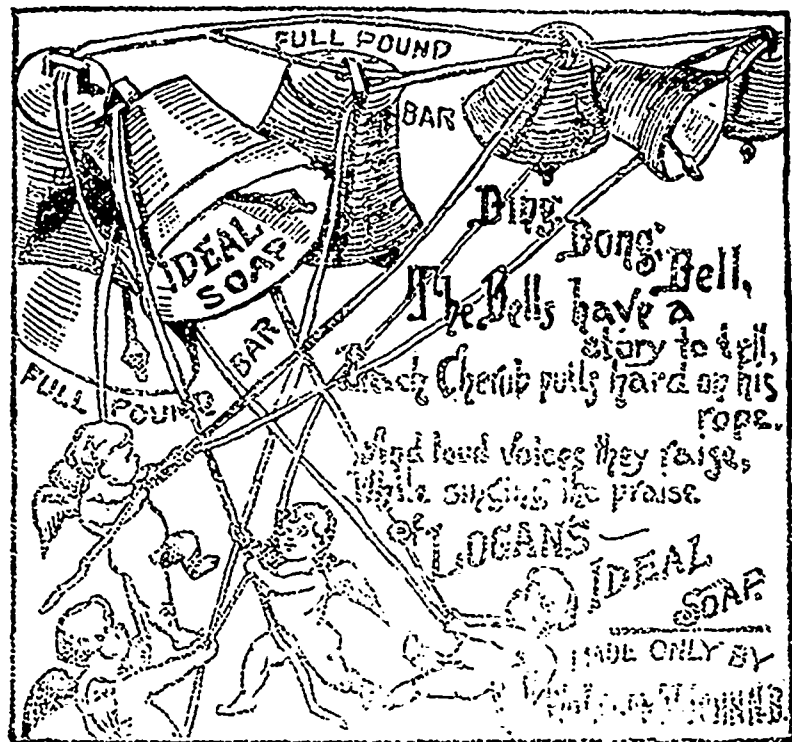 FULL POUND
BAR
IDEAL
SOAP
FULL POUND BAR
Ding
Dong
Bell,
The Bells have a
story to tell,
Each Cherub pulls hard on his
rope.
And loud voices they raise,
While singing the praise
of LOGAN'S
IDEAL
SOAP.
MADE ONLY BY